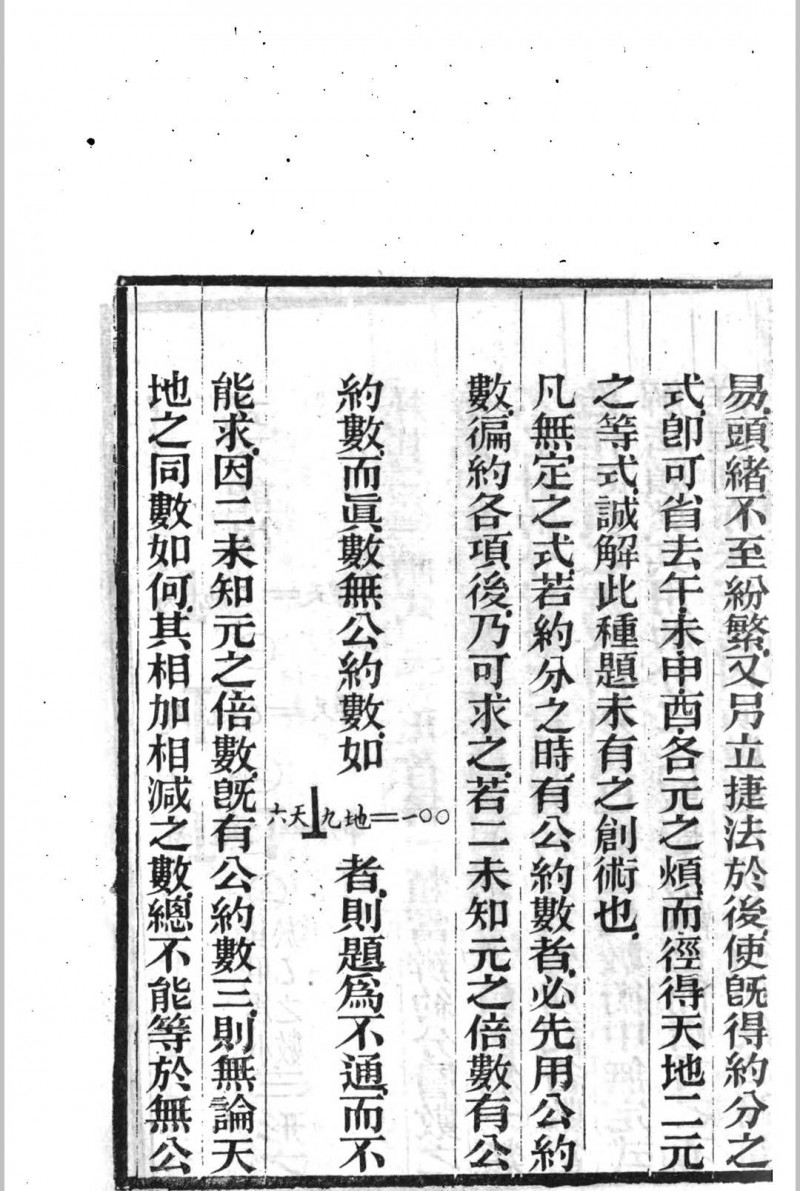 易頭緒不至紛繁又另立捷法於後使旣得約分之
式卽可省去午未申酉各元之煩而徑得天地二元
之等式誠解此種題未有之創術也
凡無定之式若約分之時有公約數者必先用公約
數徧約各項後乃可求之若二未知元之倍數有公
約數而眞數無公約數如六天⊥九地=一〇〇者則題爲不通而不
能求因二未知元之倍數旣有公約數三則無論天
地之同數如何其相加相減之數總不能等於無公